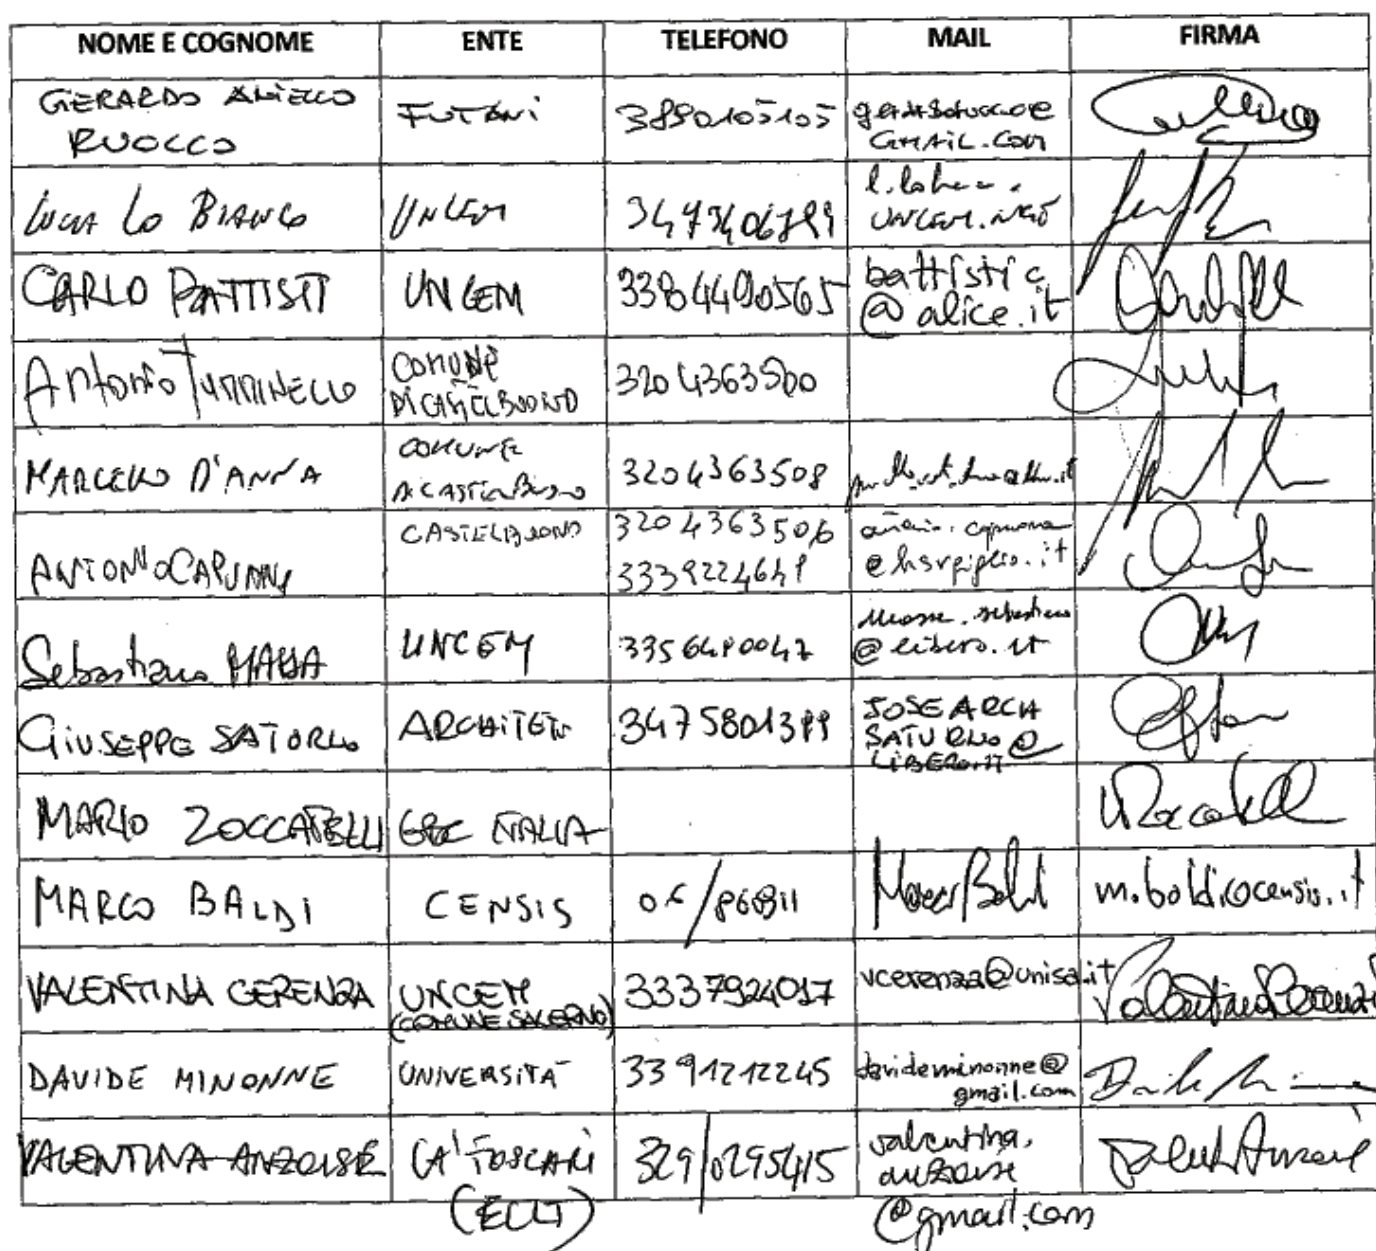 NOME E COGNOME ENTE TELEFONO MAIL FIRMA
GERARDO ANIELLO
RUOCCO
FUTANI
3880105105
GMAIL.COM
LUCA LO BIANCO UNCEM
UNCEM.INFO
CARLO BATTISTI UNCEM
battistic
@alice.it
Antonio TUMMINELLO
COMUNE
DI CASTELBUONO
3204363500
MARCELLO D'ANNA
COMUNE
DI CASTELBUONO
3204363508
ANTONIO CAPUANA
CASTELBUONO
3204363506
3339224649
Sebastiano MASSA
UNCEM
@libero.it
GIUSEPPE SATURNO
3475801399
JOSEARCH
SATURNO@
LIBERO.IT
MARIO ZOCCATELLI GBC ITALIA
MARCO BALDI CENSIS 06/860911 Marco Baldi m.baldi@censis.it
VALENTINA CERENZA
UNCEM
(COMUNE SALERNO)
3337924017
vcerenza@unisa.it
Valentina Cerenza
DAVIDE MINONNE UNIVERSITÀ 3391212245
davideminonne@
gmail.com
VALENTINA ANZOISE
CA' FOSCARI
(ECLT)
329/0295415
valentina.
anzoise
@gmail.com